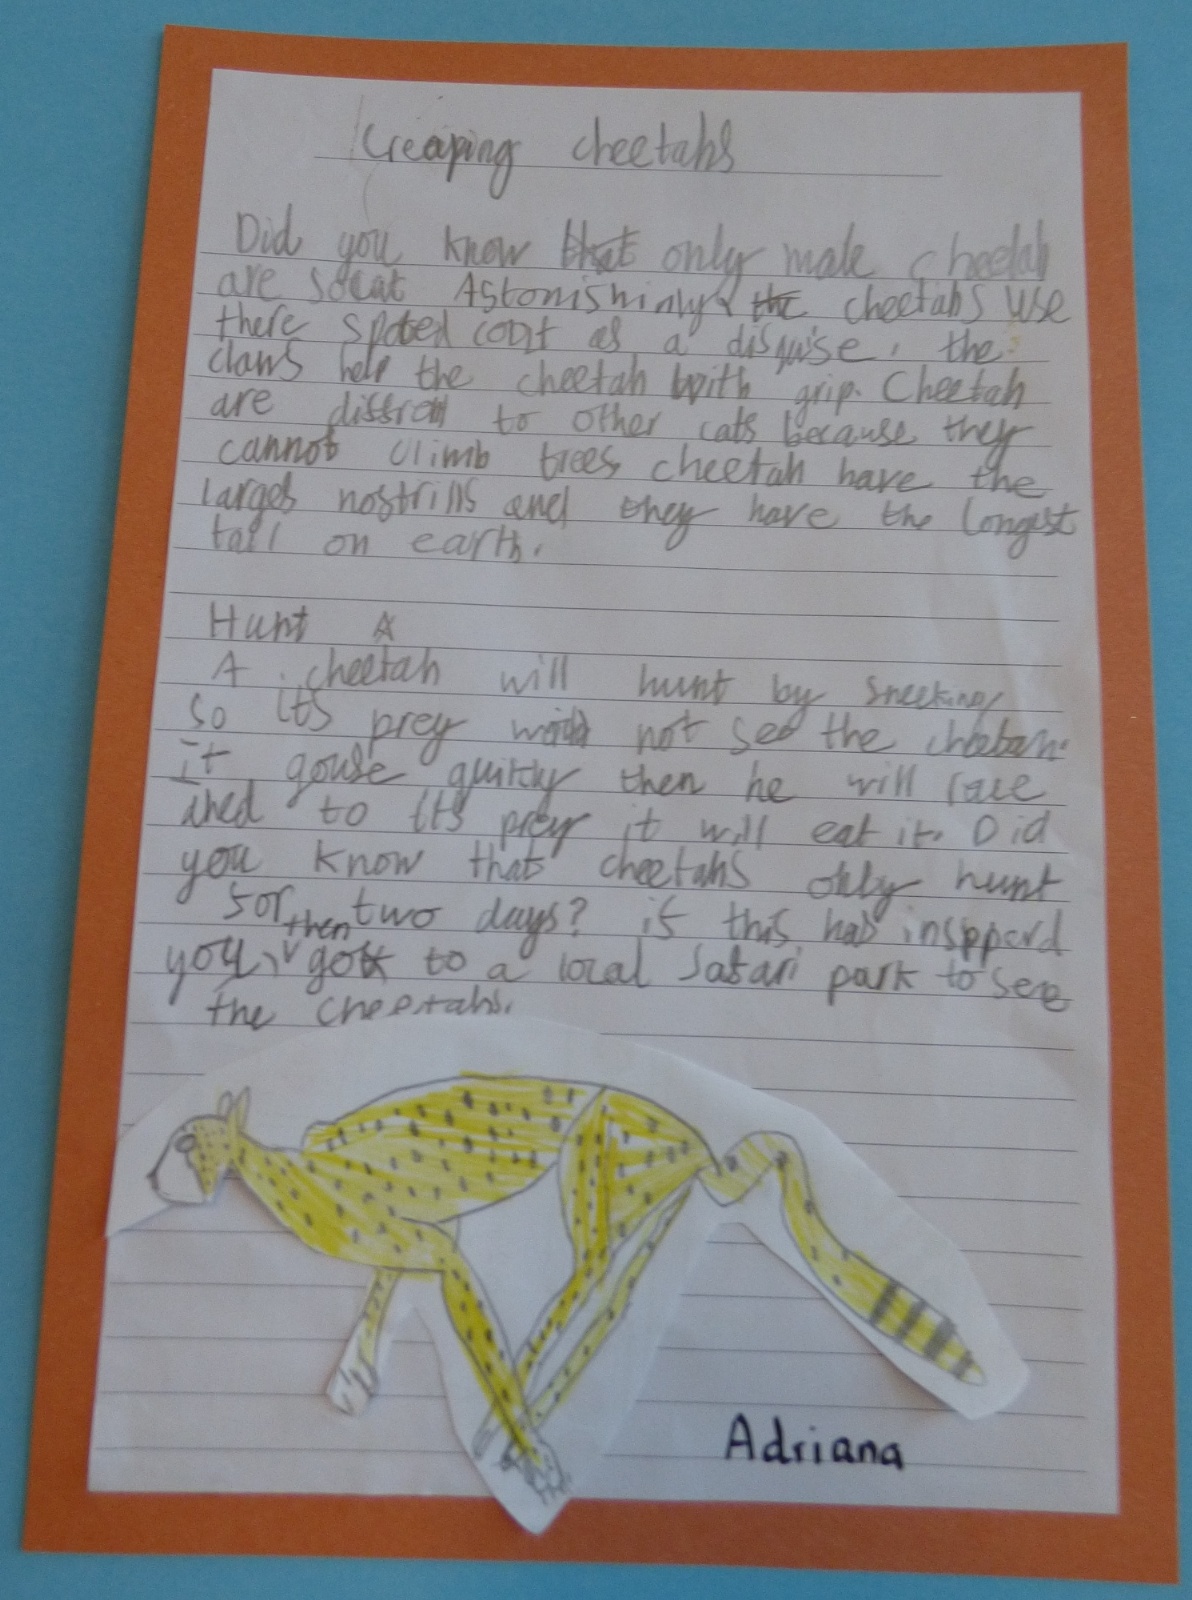 Creaping cheetahs
Did you know that only male cheetah
are socat Astonishinly the cheetahs use
there spoted coat as a disguise, the
claws help the cheetah with grip. Cheetah
are diffrent to other cats because they
cannot climb trees, cheetah have the
larges nostrills and they have the longest
tail on earth.
Hunt A
A cheetah will hunt by sneeking
so it's prey not see the cheetah.
it gouse quitly then he will race
ahed to it's prey it will eat it. Did
you know that cheetahs only hunt
for two days? if this has insppord
then
you, go to a local Safari park to see
the cheetahs.
Adriana